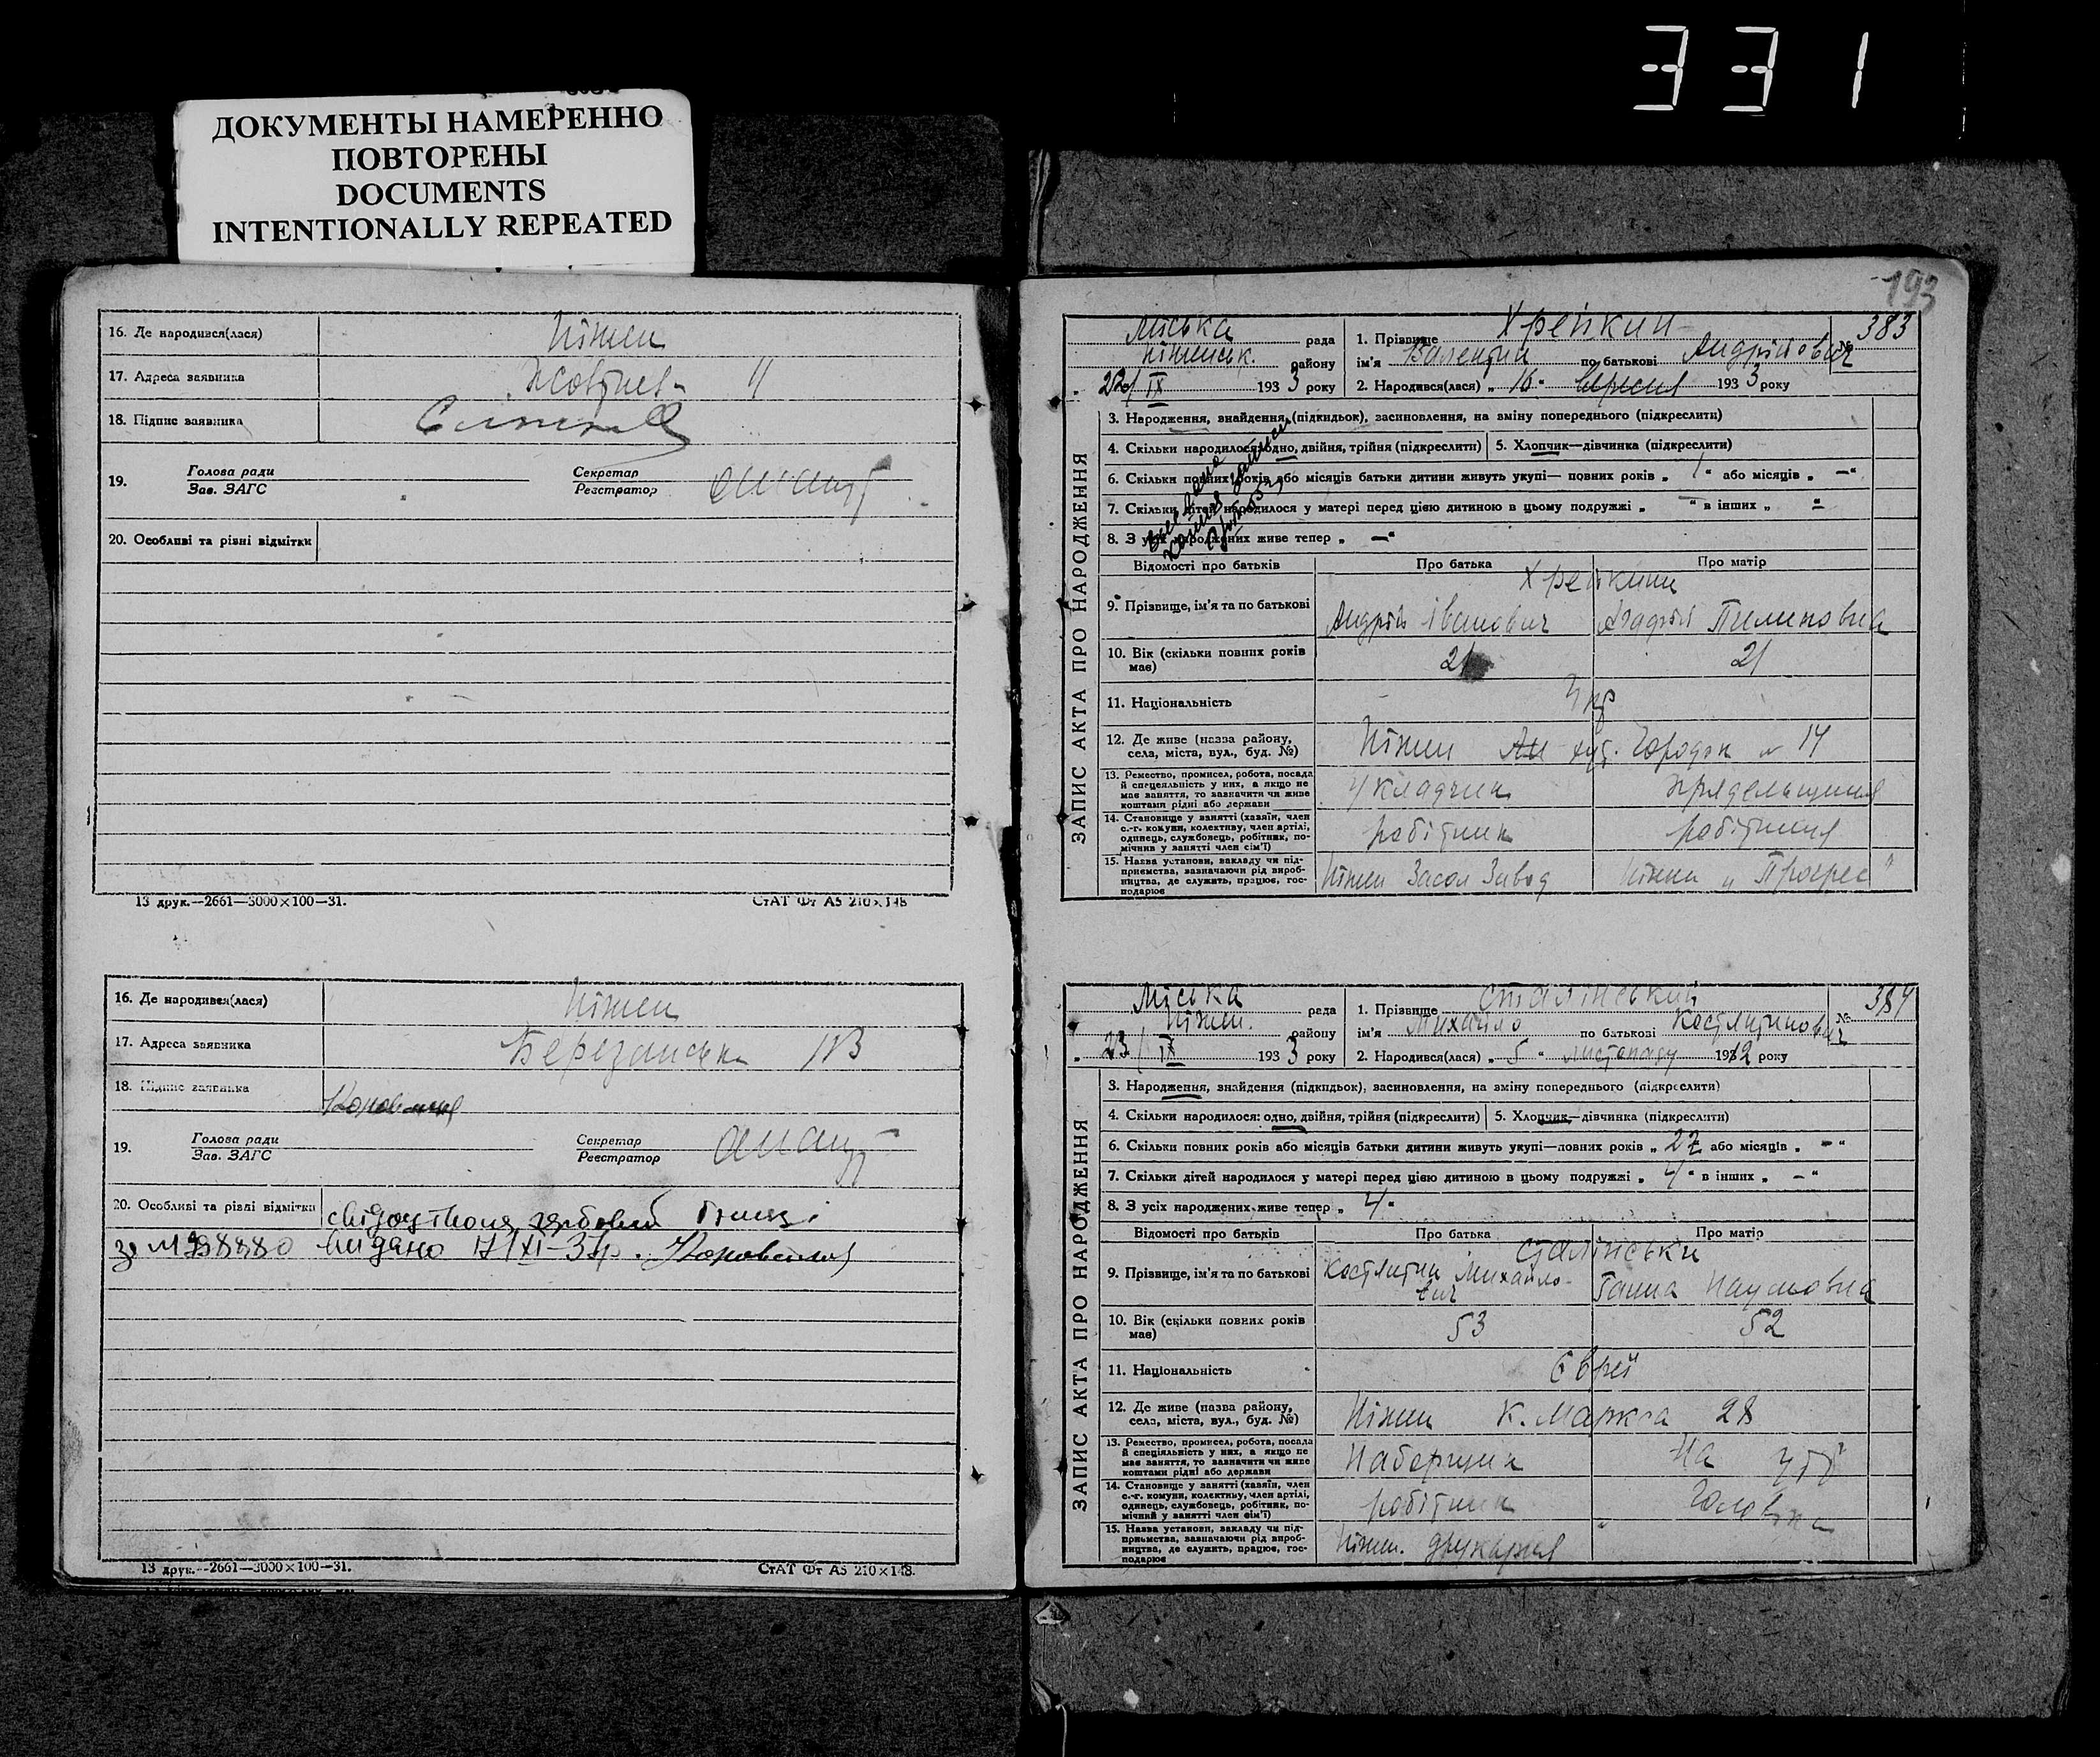 331
ДОКУМЕНТЫ НАМЕРЕННО
ПОВТОРЕНЫ
DOCUMENTS
INTENTIONALLY REPEATED
16. Де народився(лася) Ніжен
17. Адреса заявника 11
18. Підпис заявника
19. Голова ради
Зав. ЗАГС
Секретар
Реєстратор
20. Особливі та різні відмітки
13 друк.—2661—3000×100—31. СтАТ Фт А5 210×148
16. Де народився(лася) Ніжен
17. Адреса заявника
18. Підпис заявника
19. Голова ради
Зав. ЗАГС
Секретар
Реєстратор
20. Особливі та різні відмітки
видано
13 друк.—2661—3000×100—31. СтАТ Фт А5 210×148.
193
ЗАПИС АКТА ПРО НАРОДЖЕННЯ
Міська рада
Ніженськ. району
„ 22/IX 1933 року
1. Прізвище Хрейкин № 383
ім'я Валентин по батькові Андрійович
2. Народився(лася) „ 16 “ вересня 1933 року
3. Народження, знайдення (підкидьок), засиновлення, на зміну попереднього (підкреслити)
4. Скільки народилося: одно, двійня, трійня (підкреслити) 5. Хлопчик—дівчинка (підкреслити)
6. Скільки повних років або місяців батьки дитини живуть укупі— повних років „ 1 “ або місяців „ — “
7. Скільки дітей народилося у матері перед цією дитиною в цьому подружжі „ — “ в інших „ — “
8. З усіх народжених живе тепер „ — “
Відомості про батьків Про батька Про матір
Хрейкини
9. Прізвище, ім'я та по батькові Андрій Іванович Пилиповна
10. Вік (скільки повних років має) 21 21
11. Національність Укр
12. Де живе (назва району, села, міста, вул., буд. №) Ніжен 14
13. Ремество, промисел, робота, посада й спецеяльність у них, а якщо не має заняття, то зазначити чи живе коштами рідні або держави Укладчик
14. Становище у занятті (хазяїн, член с.-г. комуни, колективу, член артілі, одинець, службовець, робітник, помічник у занятті член сім'ї) робітник робітниця
15. Назва установи, закладу чи підприємства, зазначаючи рід виробництва, де служить, працює, господарює Ніжен Засол Завод Ніжен „Прогрес“
ЗАПИС АКТА ПРО НАРОДЖЕННЯ
Міська рада
Ніжен. району
„ 23/IX 1933 року
1. Прізвище Сталінський № 384
ім'я Михайло по батькові Костянтинович
2. Народився(лася) „ 5 “ листопаду 1912 року
3. Народження, знайдення (підкидьок), засиновлення, на зміну попереднього (підкреслити)
4. Скільки народилося: одно, двійня, трійня (підкреслити) 5. Хлопчик—дівчинка (підкреслити)
6. Скільки повних років або місяців батьки дитини живуть укупі—повних років „ 27 або місяців „ — “
7. Скільки дітей народилося у матері перед цією дитиною в цьому подружжі „ 4 “ в інших „ — “
8. З усіх народжених живе тепер „ 4 “
Відомості про батьків Про батька Про матір
Сталінськи
9. Прізвище, ім'я та по батькові Костянтин Михайлович Ганна Наумовна
10. Вік (скільки повних років має) 53 52
11. Національність Євреї
12. Де живе (назва району, села, міста, вул., буд. №) Ніжен К. Маркса 28
13. Ремество, промисел, робота, посада й спеціяльність у них, а якщо не має заняття, то зазначити чи живе коштами рідні або держави Наборщик На
14. Становище у занятті (хазяїн, член с.-г. комуни, колективу, член артілі, одинець, службовець, робітник, помічний у занятті член сім'ї) робітник
15. Назва установи, закладу чи підприємства, зазначаючи рід виробництва, де служить, працює, господарює Ніжен. друкарня